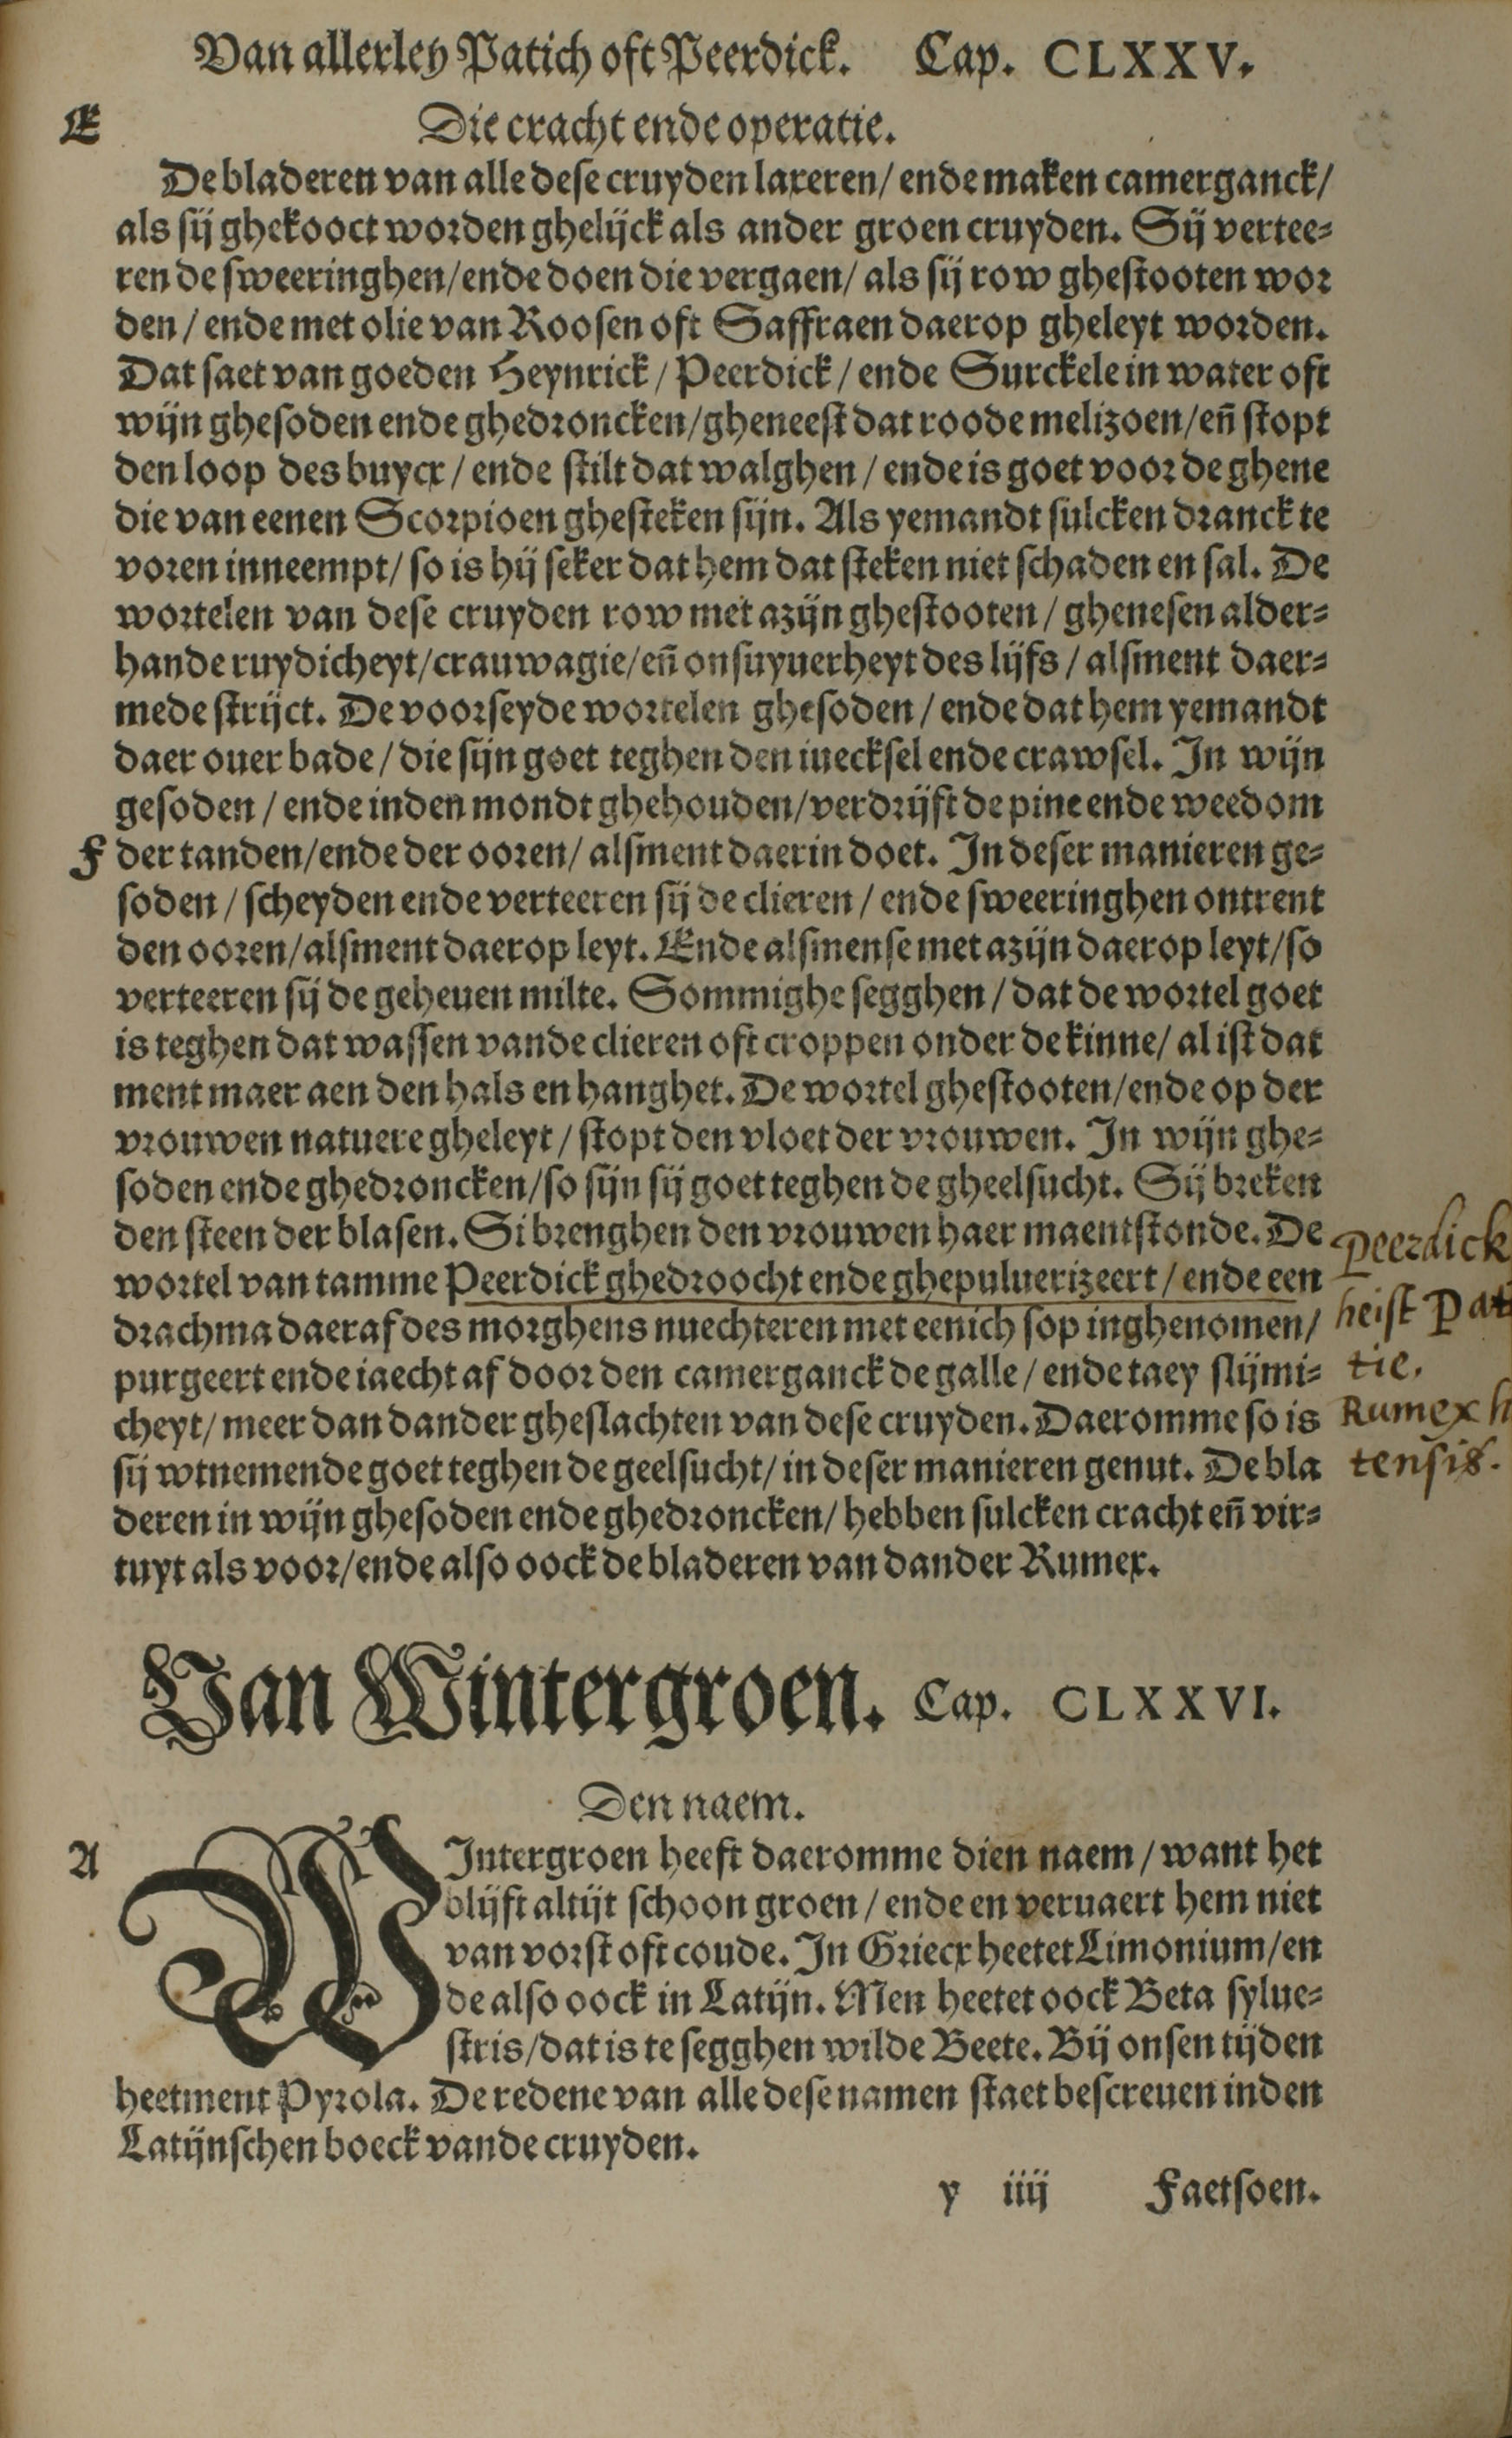 Van allerley Patich oft Peerdick. Cap. CLXXV.
E
Die cracht ende operatie.
De bladeren van alle dese cruyden laxeren/ ende maken camerganck/
als sij ghekooct worden ghelijck als ander groen cruyden. Sij vertee-
ren de sweeringhen/ende doen die vergaen/ als sij row ghestooten wor
den/ ende met olie van Roosen oft Saffraen daerop gheleyt worden.
Dat saet van goeden Heynrick/ Peerdick/ ende Surckele in water oft
wijn ghesoden ende ghedroncken/gheneest dat roode melizoen/en̄ stopt
den loop des buycx/ ende stilt dat walghen/ ende is goet voor de ghene
die van eenen Scorpioen ghesteken sijn. Als yemandt sulcken dranck te
voren inneempt/ so is hij seker dat hem dat steken niet schaden en sal. De
wortelen van dese cruyden row met azijn ghestooten/ ghenesen alder-
hande ruydicheyt/crauwagie/en̄ onsuyuerheyt des lijfs/ alsment daer-
mede strijct. De voorseyde wortelen ghesoden/ ende dat hem yemandt
daer ouer bade/ die sijn goet teghen den iuecksel ende crawsel. In wijn
gesoden/ ende inden mondt ghehouden/verdrijft de pine ende weedom
F
der tanden/ende der ooren/ alsment daerin doet. In deser manieren ge-
soden/ scheyden ende verteeren sij de clieren/ ende sweeringhen ontrent
den ooren/alsment daerop leyt. Ende alsmense met azijn daerop leyt/so
verteeren sij de geheuen milte. Sommighe segghen/ dat de wortel goet
is teghen dat wassen vande clieren oft croppen onder de kinne/ al ist dat
ment maer aen den hals en hanghet. De wortel ghestooten/ende op der
vrouwen natuere gheleyt/ stopt den vloet der vrouwen. In wijn ghe-
soden ende ghedroncken/so sijn sij goet teghen de gheelsucht. Sij breken
den steen der blasen. Si brenghen den vrouwen haer maentstonde. De
wortel van tamme Peerdick ghedroocht ende ghepuluerizeert/ ende een
drachma daeraf des morghens nuechteren met eenich sop inghenomen/
purgeert ende iaecht af door den camerganck de galle/ ende taey slijmi-
cheyt/ meer dan dander gheslachten van dese cruyden. Daeromme so is
sij wtnemende goet teghen de geelsucht/ in deser manieren genut. De bla
deren in wijn ghesoden ende ghedroncken/ hebben sulcken cracht en̄ vir-
tuyt als voor/ende also oock de bladeren van dander Rumex.
Peerdick
heist Pat
tie.
Rumex h
tensis.
Van Wintergroen. Cap. CLXXVI.
Den naem.
A
WIntergroen heeft daeromme dien naem/ want het
blijft altijt schoon groen/ ende en veruaert hem niet
van vorst oft coude. In Griecx heetet Limonium/en
de also oock in Latijn. Men heetet oock Beta sylue-
stris/dat is te segghen wilde Beete. Bij onsen tijden
heetment Pyrola. De redene van alle dese namen staet bescreuen inden
Latijnschen boeck vande cruyden.
y iiij Faetsoen.